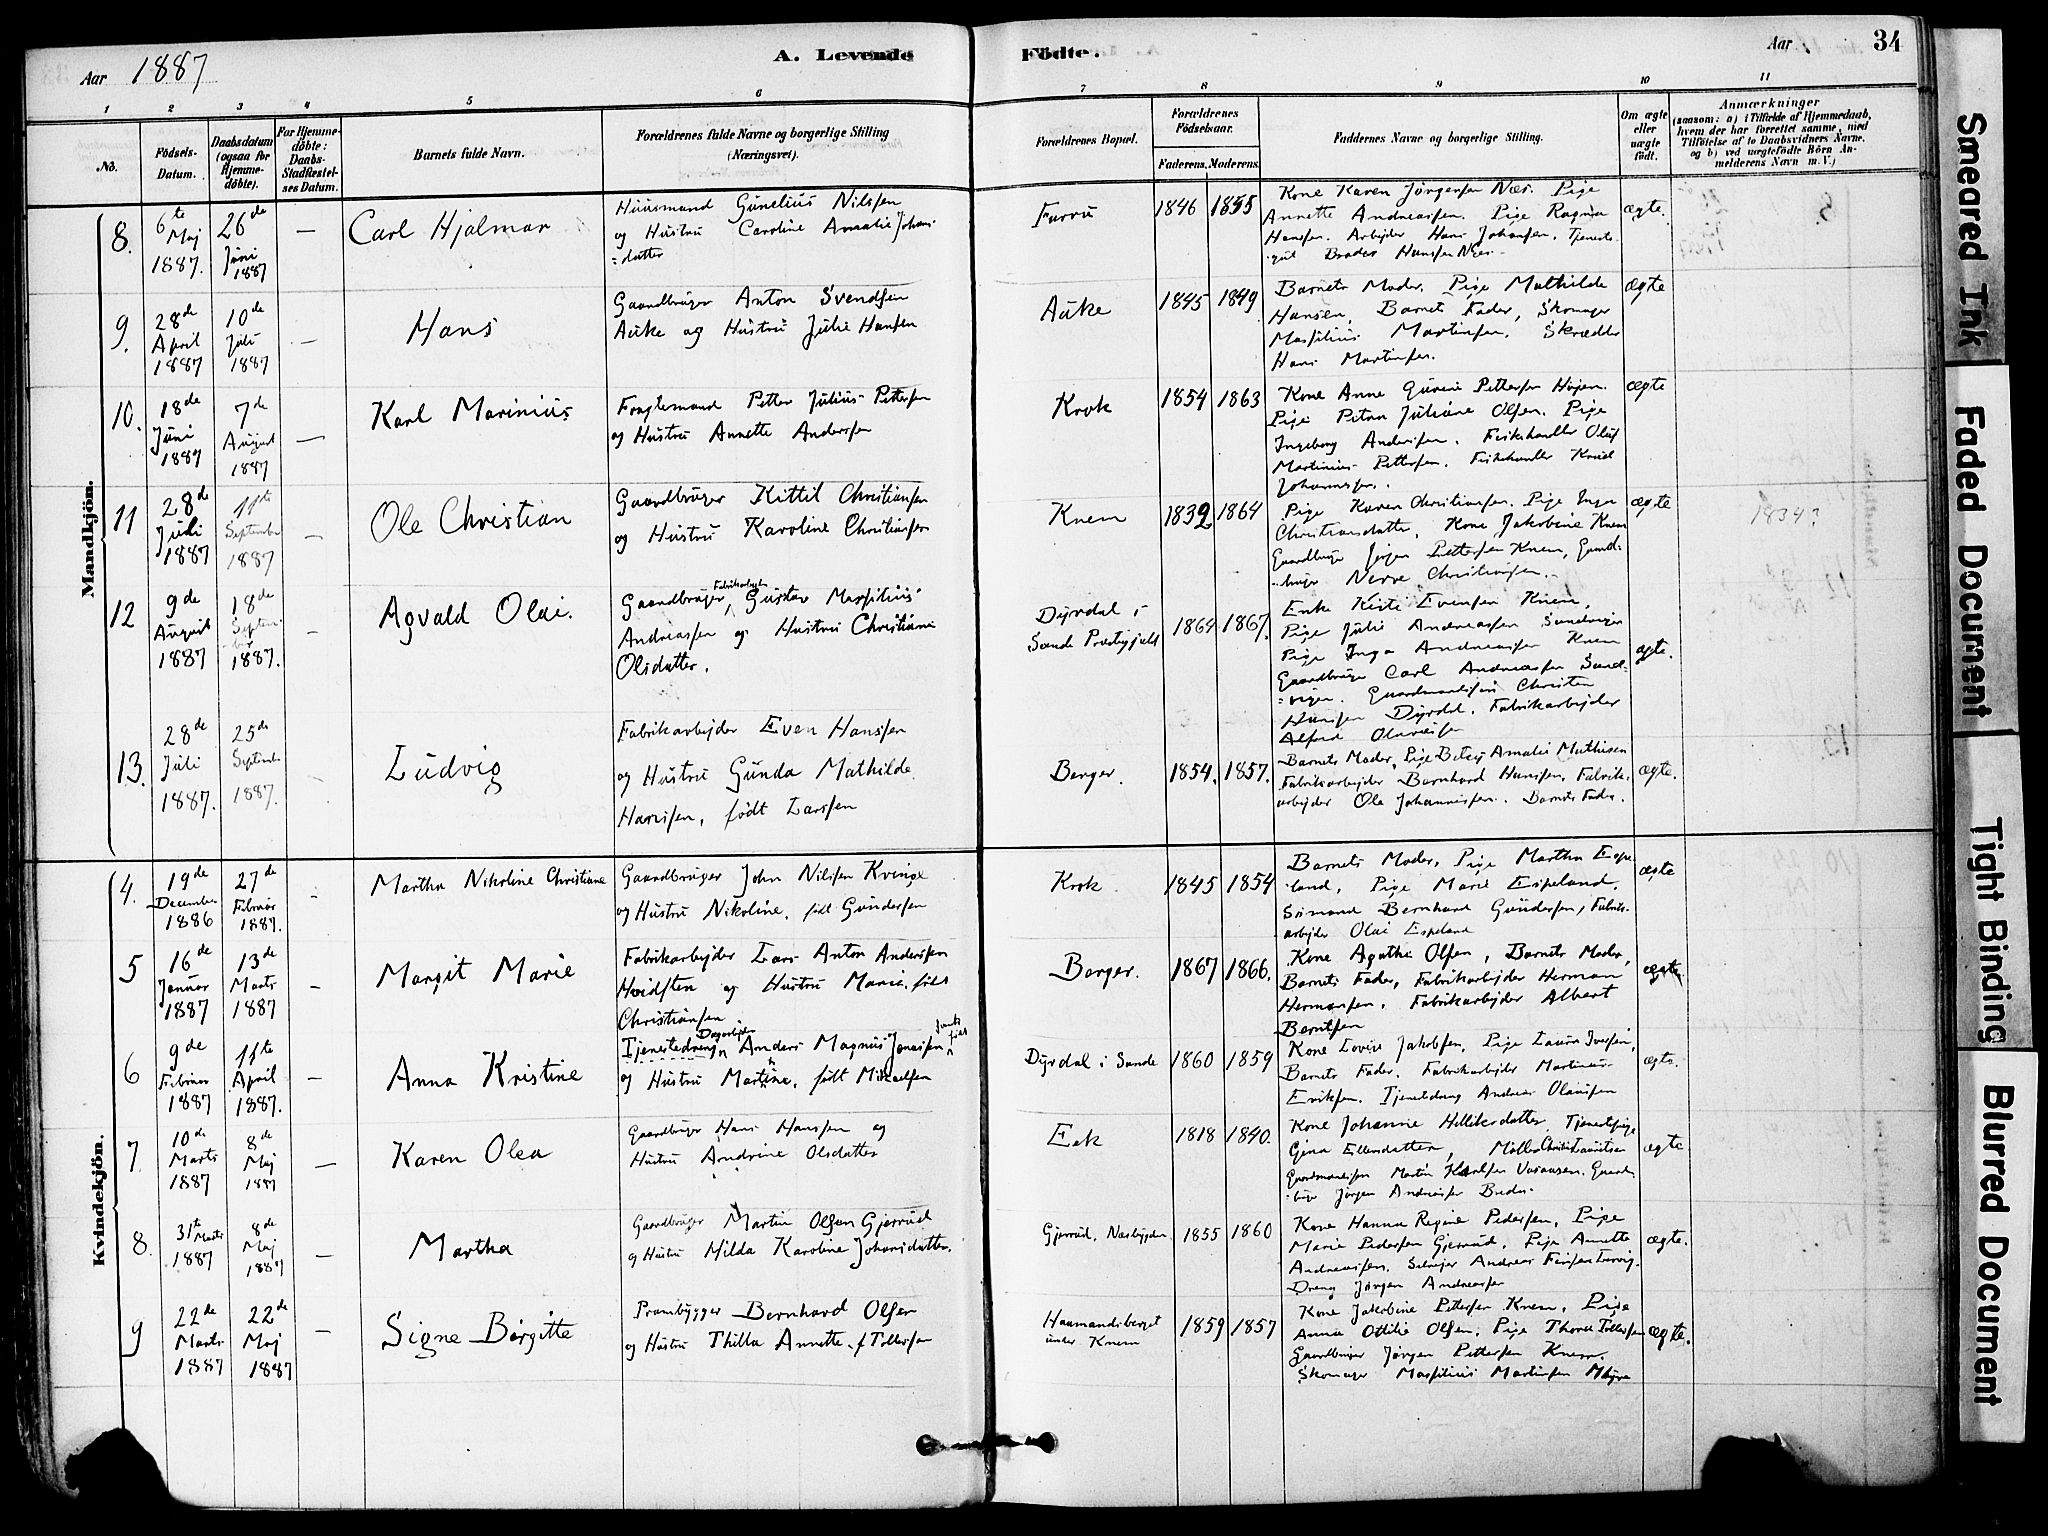 Aar 1887
A. Levende Födte.
Aar
34
1 2 3 4 5 6 7 8 9 10 11
No.
Födsels-Datum.
Daabsdatum (ogsaa for Hjemmedöbte).
For Hjemmedöbte: Daabs-Stadfæstelses Datum.
Barnets fulde Navn.
Forældrenes fulde Navne og borgerlige Stilling (Næringsvei).
Forældrenes Bopæl.
Forældrenes Födselsaar.
Faderens. Moderens.
Faddernes Navne og borgerlige Stilling.
Om ægte eller uægte født.
Anmærkninger
(saasom: a) i Tilfælde af Hjemmedaab, hvem der har forrettet samme, med Tilföielse af to Daabsvidners Navne, og b) ved uægtefödte Börn Anmelderens Navn m. V.)
Mandkjön.
8. 6te Maj 1887. 26de Juni 1887 — Carl Hjalmar
Huusmand Gunelius Nilssen
og Hustru Caroline Amalie Johans
=datter
Furru 1846 1855
Kone Karen Jørgensen Næs. Pige
Annette Andreassen. Pige Ragna
Hanssen. Arbejder Hans Johansen, Tjeneste
gut Hanssen Næs.
ægte.
9. 28de April 1887 10de Juli 1887 — Hans
Gaardbruger Anton Svendsen
Auke og Hustru Julie Hansen
Auke 1845 1849
Barnets Moder, Pige Mathilde
Hansen, Barnets Fader, Skomager
Massilius Martinsen, Skrædder
Hans Martinsen.
ægte
10. 18de Juni 1887 7de August 1887 — Karl Marinius
Fragtemand Petter Julius Pettersen
og Hustru Annette Anderssen
Krok 1854 1863
Kone Anne Gurine Pettersen Høyen.
Pige Petra Juliane Olsen. Pige
Ingeborg Anderssen. Fiskehandler Oluf
Martinius Pettersen. Fiskehandler Knud
Johannessen.
ægte
11 28de Juli 1887 11te September 1887 — Ole Christian
Gaardbruger Kittil Christiansen
og Hustru Karoline Christiansen
Knem 1832 1864
Pige Karen Christiansen. Pige Inga
Christiansdatter, Kone Jakobine Knem
Gaardbruger Jørgen Pettersen Knem, Gaard-
bruger Christiansen.
ægte
1834?
12 9de August 1887 18de September 1887. — Agvald Olai.
Fabrikarbejder
Gaardbruger, Gustav Massilius
Andreassen og Hustru Christiane
Olsdatter.
Dyrdal i
Sande Præstegjeld 1864 1867.
Enke Evensen Knem,
Pige Julie Andreassen Sandvigen
Pige Inga Andreassen Knem
Gaardbruger Carl Andreassen Sand-
=vigen. Gaardmandssøn Christen
Hansen Dyrdal. Fabrikarbejder
Alfred Olavesen
ægte.
13. 28de Juli 1887. 25de September 1887. Ludvig
Fabrikarbejder Even Hanssen
og Hustru Gunda Mathilde
Hanssen, født Larssen
Berger. 1854. 1857.
Barnets Moder, Pige Betsy Amalie Mathisen
Fabrikarbejder Bernhard Hanssen, Fabrik-
arbejder Ole Johannessen. Barnets Fader.
ægte.
Kvindekjön.
4. 19de December 1886 27de Februar 1887. - Martha Nikoline Christiane
Gaardbruger John Nilssen Kvinge
og Hustru Nikoline, født Gundersen
Krok. 1845 1854
Barnets Moder, Pige Martha Espe
land, Pige Marie Espeland,
Sømand Bernhard Gundersen, Fabrik-
arbejder Olai Espeland
ægte
5 16de Januar 1887 13de Marts 1887 — Margit Marie
Fabrikarbejder Lars Anton Anderssen
Hvidsten og Hustru Marie, født
Christiansen
Berger. 1867 1866.
Kone Agathe Olsen, Barnets Moder,
Barnets Fader, Fabrikarbejder Herman
Hermansen, Fabrikarbejder Albert
Berntsen
ægte
6 9de Februar 1887 11te April 1887. — Anna Kristine
Dagarbejder
Tjenestedreng Anders Magnus Jonassen
og Hustru Martine, født Mikaelsen
Dyrdal i Sande 1860 1859
Kone Lovise Jakobsen, Pige Laura Iversen,
Barnets Fader. Fabrikarbejder Martinus
Eriksen. Tjenestedreng Andreas Olaussen
ægte.
7. 10de Marts 1887 8de Maj 1887 — Karen Olea
Gaardbruger Hans Hanssen og
Hustru Andrine Olsdatter
Eek 1818 1840.
Kone Johanne Helliksdatter, Tjenestepige
Gina Ellensdatter, Møller Christian Lauritsen
Gaardmandssøn Martin Karlsen, Gaard-
bruger Jørgen Andreassen
ægte
8. 31te Marts 1887 8de Maj 1887 — Martha
Gaardbruger Martin Olsen Gjerrud
og Hustru Hilda Karoline Johansdatter.
Gjerrud, Næsbygden 1855 1860
Kone Hanna Regine Pedersen, Pige
Marie Pedersen Gjerrud, Pige Annette
Andreassen. Selvejer Andreas
Dreng Jørgen Andreassen
ægte.
9 22de Marts 1887 22de Maj 1887 — Signe Birgitte
Prambygger Bernhard Olsen
og Hustru Thilla Annette, f Tollefsen
Haamandsberget
under Knem 1859 1857
Kone Jakobine Pettersen Knem, Pige
Anna Ottilie Olsen, Pige Thora Tollefsen
Gaardbruger Jørgen Pettersen Knem.
Skomager Massilius Martinsen Myra
ægte.
Smeared Ink
Faded Document
Tight Binding
Blurred Document